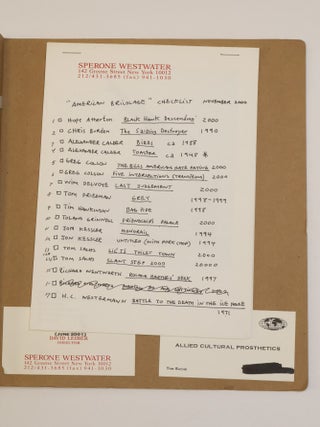 SPERONE WESTWATER
142 Greene Street New York 10012
212/431-3685 (fax) 941-1030
"AMERICAN BRICOLAGE" CHECKLIST NOVEMBER 2000
1 Hope Atherton Black Hawk Descending 2000
2 CHRIS BURDEN The Spiding Destroyer 1990
3 ALEXANDER CALDER BIRDS ca 1958
4 ALEXANDER CALDER ca 1948 *
5 GREG COLSON AMERICANS HATE EATING 2000
6 GREG COLSON FIVE INTERSECTIONS 2000
7 WIM DELVOYE LAST JUDGEMENT 2000
TOM FRIEDMAN GREY 1998-1999
TIM HAWKINSON BAG PIPE 1998
ROLAND PALACE 2000
JON KESSLER MONORAIL 1994
JON KESSLER UNTITLED (WITH PORK CHOP) 1997
TOM SACHS TOILET 2000
TOM SACHS SLANT STEP 2000 2000
RICHARD WENTWORTH 1997
H.C. WESTERMANN BATTLE TO THE DEATH IN THE ICE HOUSE
1971
DAVID LEIBER
DIRECTOR
SPERONE WESTWATER
142 Greene Street New York 10012
212/431-3685 (fax) 941-1030
ALLIED CULTURAL PROSTHETICS
Tom Sachs